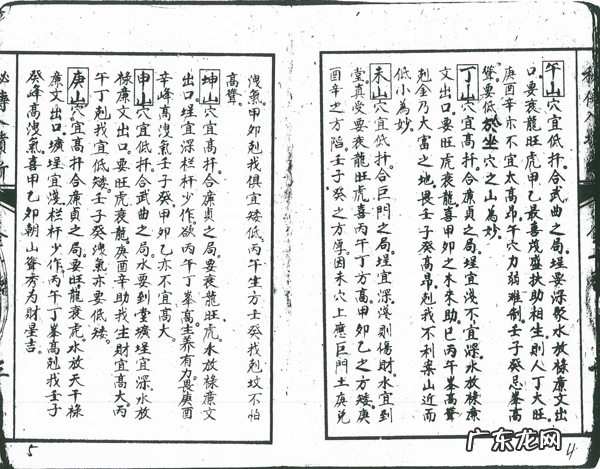 午山穴宜低扦．合武曲之局．埕要深聚水放祿廉文出
口．要衰龍旺虎甲乙最喜茂盛扶助相生．則人丁大旺．
庚酉辛亦不宜太高昂．午穴力弱难制．壬子癸忌峯高
聳要低於坐穴之山為妙．
丁山穴宜高扦．合廉貞之局．埕宜浅不宜深．水放祿廉
文出口．要旺虎衰龍喜甲卯之木来助．巳丙午峯高聳
剋金乃大富之地．畏壬子癸高昂．剋我不利案山近而
低小為妙．
未山穴宜低扦．合巨門之局．埕宜深．浅則傷財．水宜到
堂．真受要衰龍旺虎．喜丙午丁方高．甲卯乙之方矮．庚
酉辛之方陷．壬子癸之方厚．因未穴上應巨門土庚兑
洩氣．甲卯剋我俱宜矮低．丙午生方壬癸我剋坟不怕
高聳．
坤山穴宜高扦．合廉貞之局．要衰龍旺虎．水放祿廉文
出口．埕宜深栏杆少作．欲丙午丁峯高．生养有力．畏庚酉
辛峰高洩氣．壬子癸甲卯乙亦不宜高大．
申山穴宜低扦．合武曲之局．水要到堂．壙埕宜深．水放
祿廉文出口．要旺虎衰龍．庚酉辛助我生財宜高大．丙
午丁剋我宜低矮．壬子癸洩氣亦要低矮．
庚山穴宜高扦．合廉貞之局．要旺龍衰虎．水放天干祿
廉文出口．壙埕宜浅．栏杆少作．丙午丁峯高剋我．壬子
癸峰高洩氣．喜甲乙卯朝山聳秀．為財星吉．
5
4
三
广东龙网